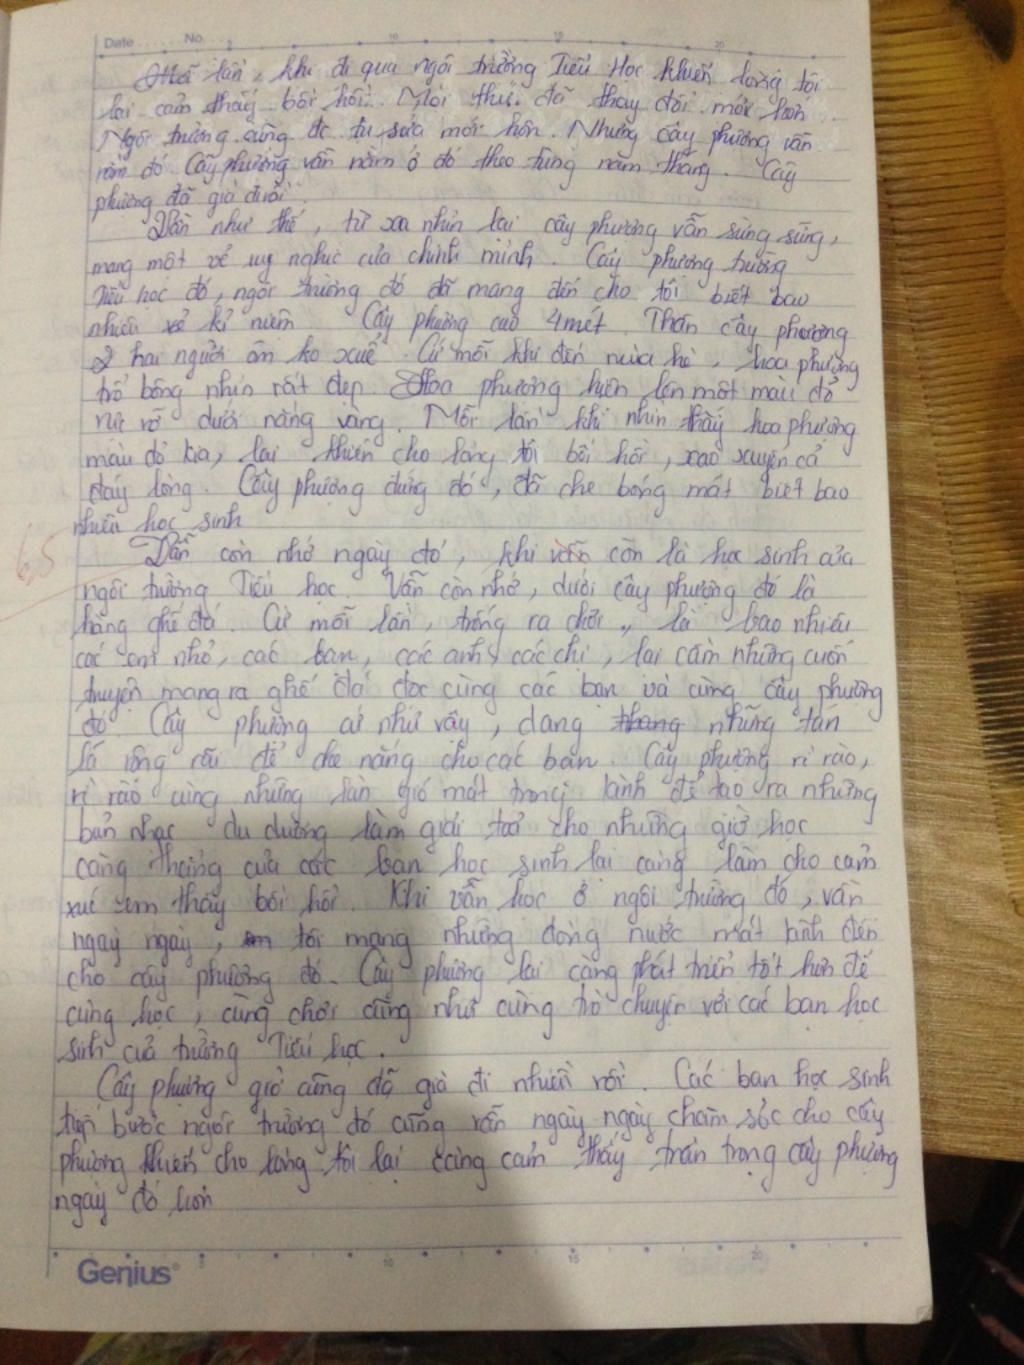 Date ...... No. ...
Mỗi lần, khi đi qua ngôi trường Tiểu Học khiến lòng tôi
lại cảm thấy bồi hồi. Mọi thứ đã thay đổi mới hơn.
Ngôi trường cũng đc tu sửa mới hơn. Nhưng cây phượng vẫn
nằm đó. Cây phượng vẫn nằm ở đó theo từng năm tháng. Cây
phượng đã già đi rồi.
Vẫn như thế, từ xa nhìn lại cây phượng vẫn sừng sững,
mang một vẻ uy nghiêm của chính mình. Cây phượng trường
Tiểu học đó, ngôi trường đó đã mang đến cho tôi biết bao
nhiêu kỉ niệm. Cây phượng cao 4 mét. Thân cây phượng
2 hai người ôm ko xuể. Cứ mỗi khi đến mùa hè, hoa phượng
trổ bông nhìn rất đẹp. Hoa phượng hiện lên một màu đỏ
rực rỡ dưới nắng vàng. Mỗi lần khi nhìn thấy hoa phượng
màu đỏ kia, lại khiến cho lòng tôi bồi hồi, xao xuyến cả
đáy lòng. Cây phượng đứng đó, đã che bóng mát biết bao
nhiêu học sinh
6,5
Vẫn còn nhớ ngày đó, khi vẫn còn là học sinh của
ngôi trường Tiểu học. Vẫn còn nhớ, dưới cây phượng đó là
hàng ghế đá. Cứ mỗi lần, trống ra chơi,, là bao nhiêu
các em nhỏ, các bạn, các anh, các chị, lại cầm những cuốn
truyện mang ra ghế đá đọc cùng các bạn và cùng cây phượng
đó. Cây phượng cứ như vậy, dang những tán
lá rộng rãi để che nắng cho các bạn. Cây phượng rì rào,
rì rào cùng những làn gió mát trong lành để tạo ra những
bản nhạc du dương làm giải toả cho những giờ học
căng thẳng của các bạn học sinh lại càng làm cho cảm
xúc em thấy bồi hồi. Khi vẫn học ở ngôi trường đó, vẫn
ngày ngày, tôi mang những dòng nước mát lành đến
cho cây phượng đó. Cây phượng lại càng phát triển tốt hơn để
cùng học, cùng chơi cũng như cùng trò chuyện với các bạn học
sinh của trường Tiểu học.
Cây phượng giờ cũng đã già đi nhiều rồi. Các bạn học sinh
tiếp bước ngôi trường đó cũng vẫn ngày ngày chăm sóc cho cây
phượng khiến cho lòng tôi lại càng cảm thấy trân trọng cây phượng
ngày đó hơn
Genius